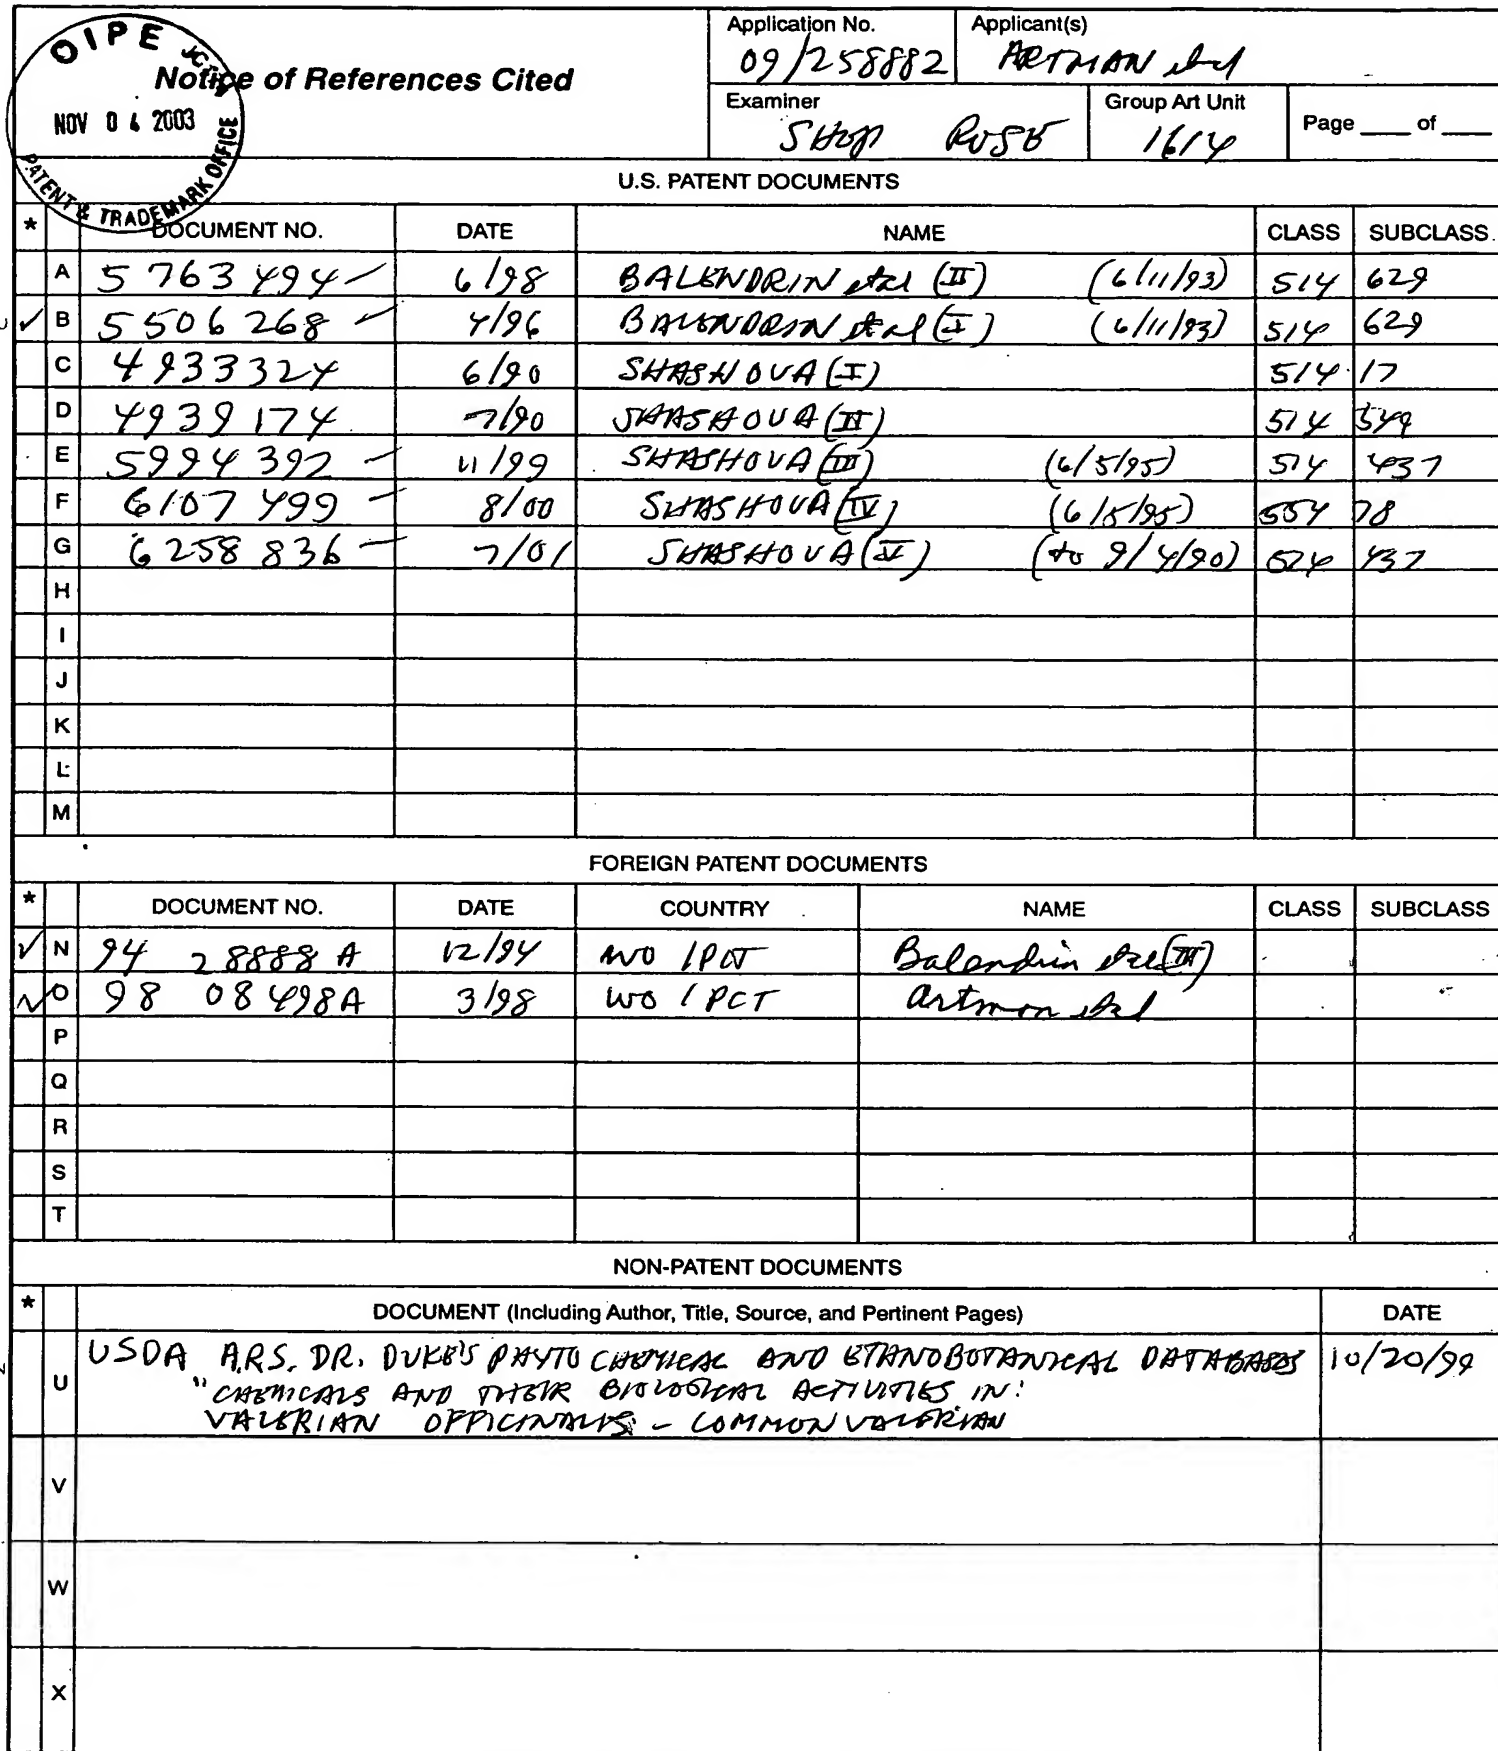 OIPE JC
NOV 04 2003
PATENT & TRADEMARK OFFICE
Notice of References Cited
Application No.
09/258882
Applicant(s)
ARTMAN et al
Examiner
SHEP ROSE
Group Art Unit
1614
Page ____ of ____
U.S. PATENT DOCUMENTS
* DOCUMENT NO. DATE NAME CLASS SUBCLASS
A 5763494 6/98 BALENDRIN et al (II) (6/11/93) 514 629
✓ B 5506268 4/96 BALENDRIN et al (I) (6/11/93) 514 629
C 4933324 6/90 SHASHOUA (I) 514 17
D 4939174 7/90 SHASHOUA (II) 514 549
E 5994392 11/99 SHASHOUA (III) (6/5/95) 514 437
F 6107499 8/00 SHASHOUA (IV) (6/5/95) 554 78
G 6258836 7/01 SHASHOUA (V) (to 9/4/90) 514 437
H
I
J
K
L
M
FOREIGN PATENT DOCUMENTS
* DOCUMENT NO. DATE COUNTRY NAME CLASS SUBCLASS
✓ N 94 28888 A 12/94 WO / PCT Balendrin et al (III)
✓ O 98 08498A 3/98 WO / PCT Artman et al
P
Q
R
S
T
NON-PATENT DOCUMENTS
* DOCUMENT (Including Author, Title, Source, and Pertinent Pages) DATE
U USDA ARS. DR. DUKE'S PHYTO CHEMICAL AND ETHNOBOTANICAL DATABASES 10/20/99
"CHEMICALS AND THEIR BIOLOGICAL ACTIVITIES IN:
VALERIAN OFFICINALIS - COMMON VALERIAN
V
W
X